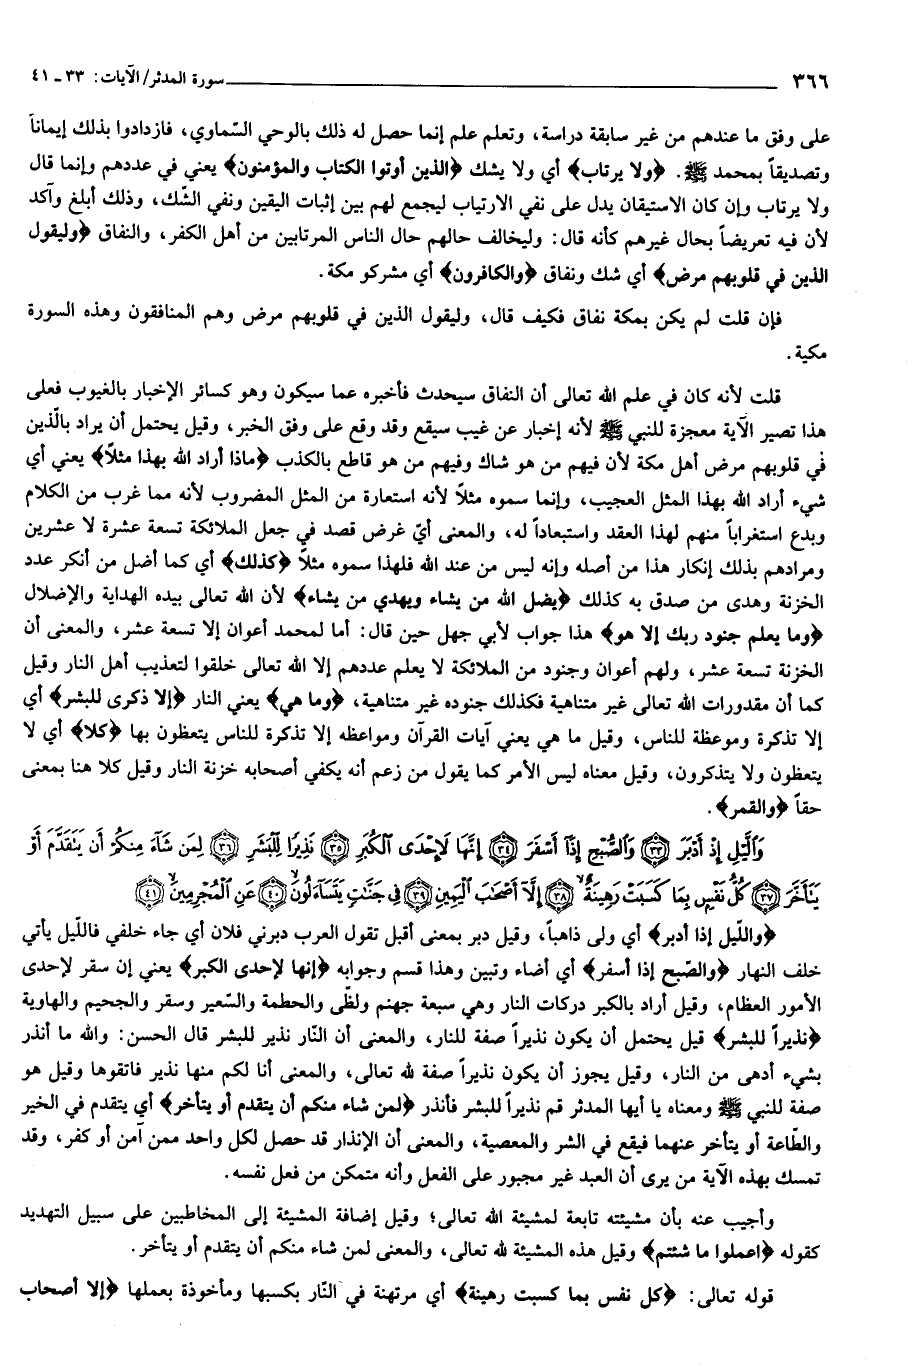 ٣٦٦ سورة المدثر/ الآيات: ٣٣ ـ ٤١
على وفق ما عندهم من غير سابقة دراسة، وتعلم علم إنما حصل له ذلك بالوحي السّماوي، فازدادوا بذلك إيماناً
وتصديقاً بمحمد ﷺ. ﴿ولا يرتاب﴾ أي ولا يشك ﴿الذين أوتوا الكتاب والمؤمنون﴾ يعني في عددهم وإنما قال
ولا يرتاب وإن كان الاستيقان يدل على نفي الارتياب ليجمع لهم بين إثبات اليقين ونفي الشّك، وذلك أبلغ وآكد
لأن فيه تعريضاً بحال غيرهم كأنه قال: وليخالف حالهم حال الناس المرتابين من أهل الكفر، والنفاق ﴿وليقول
الذين في قلوبهم مرض﴾ أي شك ونفاق ﴿والكافرون﴾ أي مشركو مكة.
فإن قلت لم يكن بمكة نفاق فكيف قال، وليقول الذين في قلوبهم مرض وهم المنافقون وهذه السورة
مكية.
قلت لأنه كان في علم الله تعالى أن النفاق سيحدث فأخبره عما سيكون وهو كسائر الإخبار بالغيوب فعلى
هذا تصير الآية معجزة للنبي ﷺ لأنه إخبار عن غيب سيقع وقد وقع على وفق الخبر، وقيل يحتمل أن يراد بالّذين
في قلوبهم مرض أهل مكة لأن فيهم من هو شاك وفيهم من هو قاطع بالكذب ﴿ماذا أراد الله بهذا مثلاً﴾ يعني أي
شيء أراد الله بهذا المثل العجيب، وإنما سموه مثلاً لأنه استعارة من المثل المضروب لأنه مما غرب من الكلام
وبدع استغراباً منهم لهذا العقد واستبعاداً له، والمعنى أيّ غرض قصد في جعل الملائكة تسعة عشرة لا عشرين
ومرادهم بذلك إنكار هذا من أصله وإنه ليس من عند الله فلهذا سموه مثلاً ﴿كذلك﴾ أي كما أضل من أنكر عدد
الخزنة وهدى من صدق به كذلك ﴿يضل الله من يشاء ويهدي من يشاء﴾ لأن الله تعالى بيده الهداية والإضلال
﴿وما يعلم جنود ربك إلا هو﴾ هذا جواب لأبي جهل حين قال: أما لمحمد أعوان إلا تسعة عشر، والمعنى أن
الخزنة تسعة عشر، ولهم أعوان وجنود من الملائكة لا يعلم عددهم إلا الله تعالى خلقوا لتعذيب أهل النار وقيل
كما أن مقدورات الله تعالى غير متناهية فكذلك جنوده غير متناهية، ﴿وما هي﴾ يعني النار ﴿إلا ذكرى للبشر﴾ أي
إلا تذكرة وموعظة للناس، وقيل ما هي يعني آيات القرآن ومواعظه إلا تذكرة للناس يتعظون بها ﴿كلا﴾ أي لا
يتعظون ولا يتذكرون، وقيل معناه ليس الأمر كما يقول من زعم أنه يكفي أصحابه خزنة النار وقيل كلا هنا بمعنى
حقاً ﴿والقمر﴾.
وَٱلَّيْلِ إِذْ أَدْبَرَ ﴿٣٣﴾ وَٱلصُّبْحِ إِذَآ أَسْفَرَ ﴿٣٤﴾ إِنَّهَا لَإِحْدَى ٱلْكُبَرِ ﴿٣٥﴾ نَذِيرًا لِّلْبَشَرِ ﴿٣٦﴾ لِمَن شَآءَ مِنكُمْ أَن يَتَقَدَّمَ أَوْ
يَتَأَخَّرَ ﴿٣٧﴾ كُلُّ نَفْسٍۭ بِمَا كَسَبَتْ رَهِينَةٌ ﴿٣٨﴾ إِلَّآ أَصْحَٰبَ ٱلْيَمِينِ ﴿٣٩﴾ فِى جَنَّٰتٍ يَتَسَآءَلُونَ ﴿٤٠﴾ عَنِ ٱلْمُجْرِمِينَ ﴿٤١﴾
﴿واللّيل إذا أدبر﴾ أي ولى ذاهباً، وقيل دبر بمعنى أقبل تقول العرب دبرني فلان أي جاء خلفي فاللّيل يأتي
خلف النهار ﴿والصّبح إذا أسفر﴾ أي أضاء وتبين وهذا قسم وجوابه ﴿إنها لإحدى الكبر﴾ يعني إن سقر لإحدى
الأمور العظام، وقيل أراد بالكبر دركات النار وهي سبعة جهنم ولظًى والحطمة والسّعير وسقر والجحيم والهاوية
﴿نذيراً للبشر﴾ قيل يحتمل أن يكون نذيراً صفة للنار، والمعنى أن النّار نذير للبشر قال الحسن: والله ما أنذر
بشيء أدهى من النار، وقيل يجوز أن يكون نذيراً صفة لله تعالى، والمعنى أنا لكم منها نذير فاتقوها وقيل هو
صفة للنبي ﷺ ومعناه يا أيها المدثر قم نذيراً للبشر فأنذر ﴿لمن شاء منكم أن يتقدم أو يتأخر﴾ أي يتقدم في الخير
والطّاعة أو يتأخر عنهما فيقع في الشر والمعصية، والمعنى أن الإنذار قد حصل لكل واحد ممن آمن أو كفر، وقد
تمسك بهذه الآية من يرى أن العبد غير مجبور على الفعل وأنه متمكن من فعل نفسه.
وأجيب عنه بأن مشيئته تابعة لمشيئة الله تعالى؛ وقيل إضافة المشيئة إلى المخاطبين على سبيل التهديد
كقوله ﴿اعملوا ما شئتم﴾ وقيل هذه المشيئة لله تعالى، والمعنى لمن شاء منكم أن يتقدم أو يتأخر.
قوله تعالى: ﴿كل نفس بما كسبت رهينة﴾ أي مرتهنة في النّار بكسبها ومأخوذة بعملها ﴿إلا أصحاب